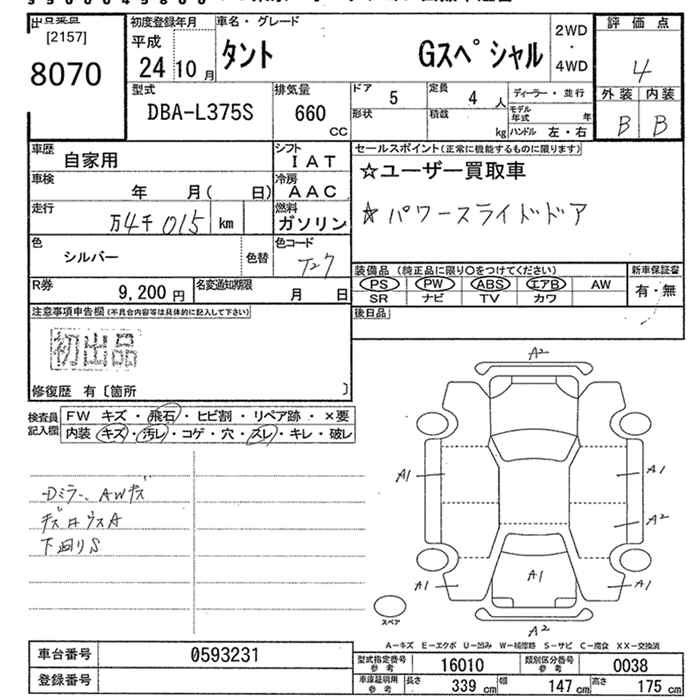 [2157]
8070
初度登録年月
平成
24 10 月
車名・グレード
タント Gスペシャル
2WD
・
4WD
評価点
4
外装 内装
B B
型式
DBA-L375S
排気量
660
CC
ドア 5
定員 4 人
形状
積載 kg
ディーラー・並行
モデル年式 年
ハンドル 左・右
車歴
自家用
シフト
IAT
車検
年 月( 日)
冷房
AAC
走行
万4千015 km
燃料
ガソリン
色
シルバー
色替
色コード
T27
R券
9,200 円
名変通知期限
月 日
セールスポイント(正常に機能するものに限ります)
☆ユーザー買取車
☆パワースライドドア
装備品(純正品に限り○をつけてください)
PS PW ABS エアB AW
SR ナビ TV カワ
新車保証書
有・無
後日品
注意事項申告欄(不具合内容等は具体的に記入して下さい)
初出品
修復歴 有〔箇所 〕
検査員
記入欄
FW キズ・飛石・ヒビ割・リペア跡・×要
内装 キズ・汚レ・コゲ・穴・スレ・キレ・破レ
Dミラー、AWキズ
下廻りS
A2
A1
A1
A2
A1
A1
A1
A2
スペア
A−キズ E−エクボ U−凹み W−補修跡 S−サビ C−腐食 XX−交換済
車台番号 0593231
登録番号
型式指定番号
参考
16010
類別区分番号
参考
0038
車庫証明用
参考
長さ 339 cm
幅 147 cm
高さ 175 cm